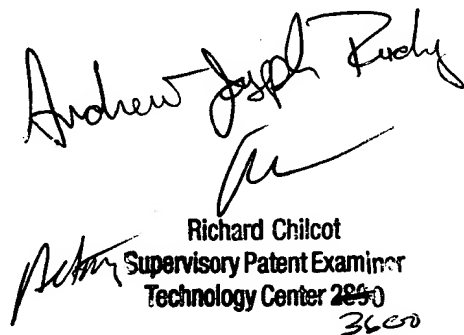 Andrew Joseph Rudy
Richard Chilcot
Acting Supervisory Patent Examiner
Technology Center 2800
3600